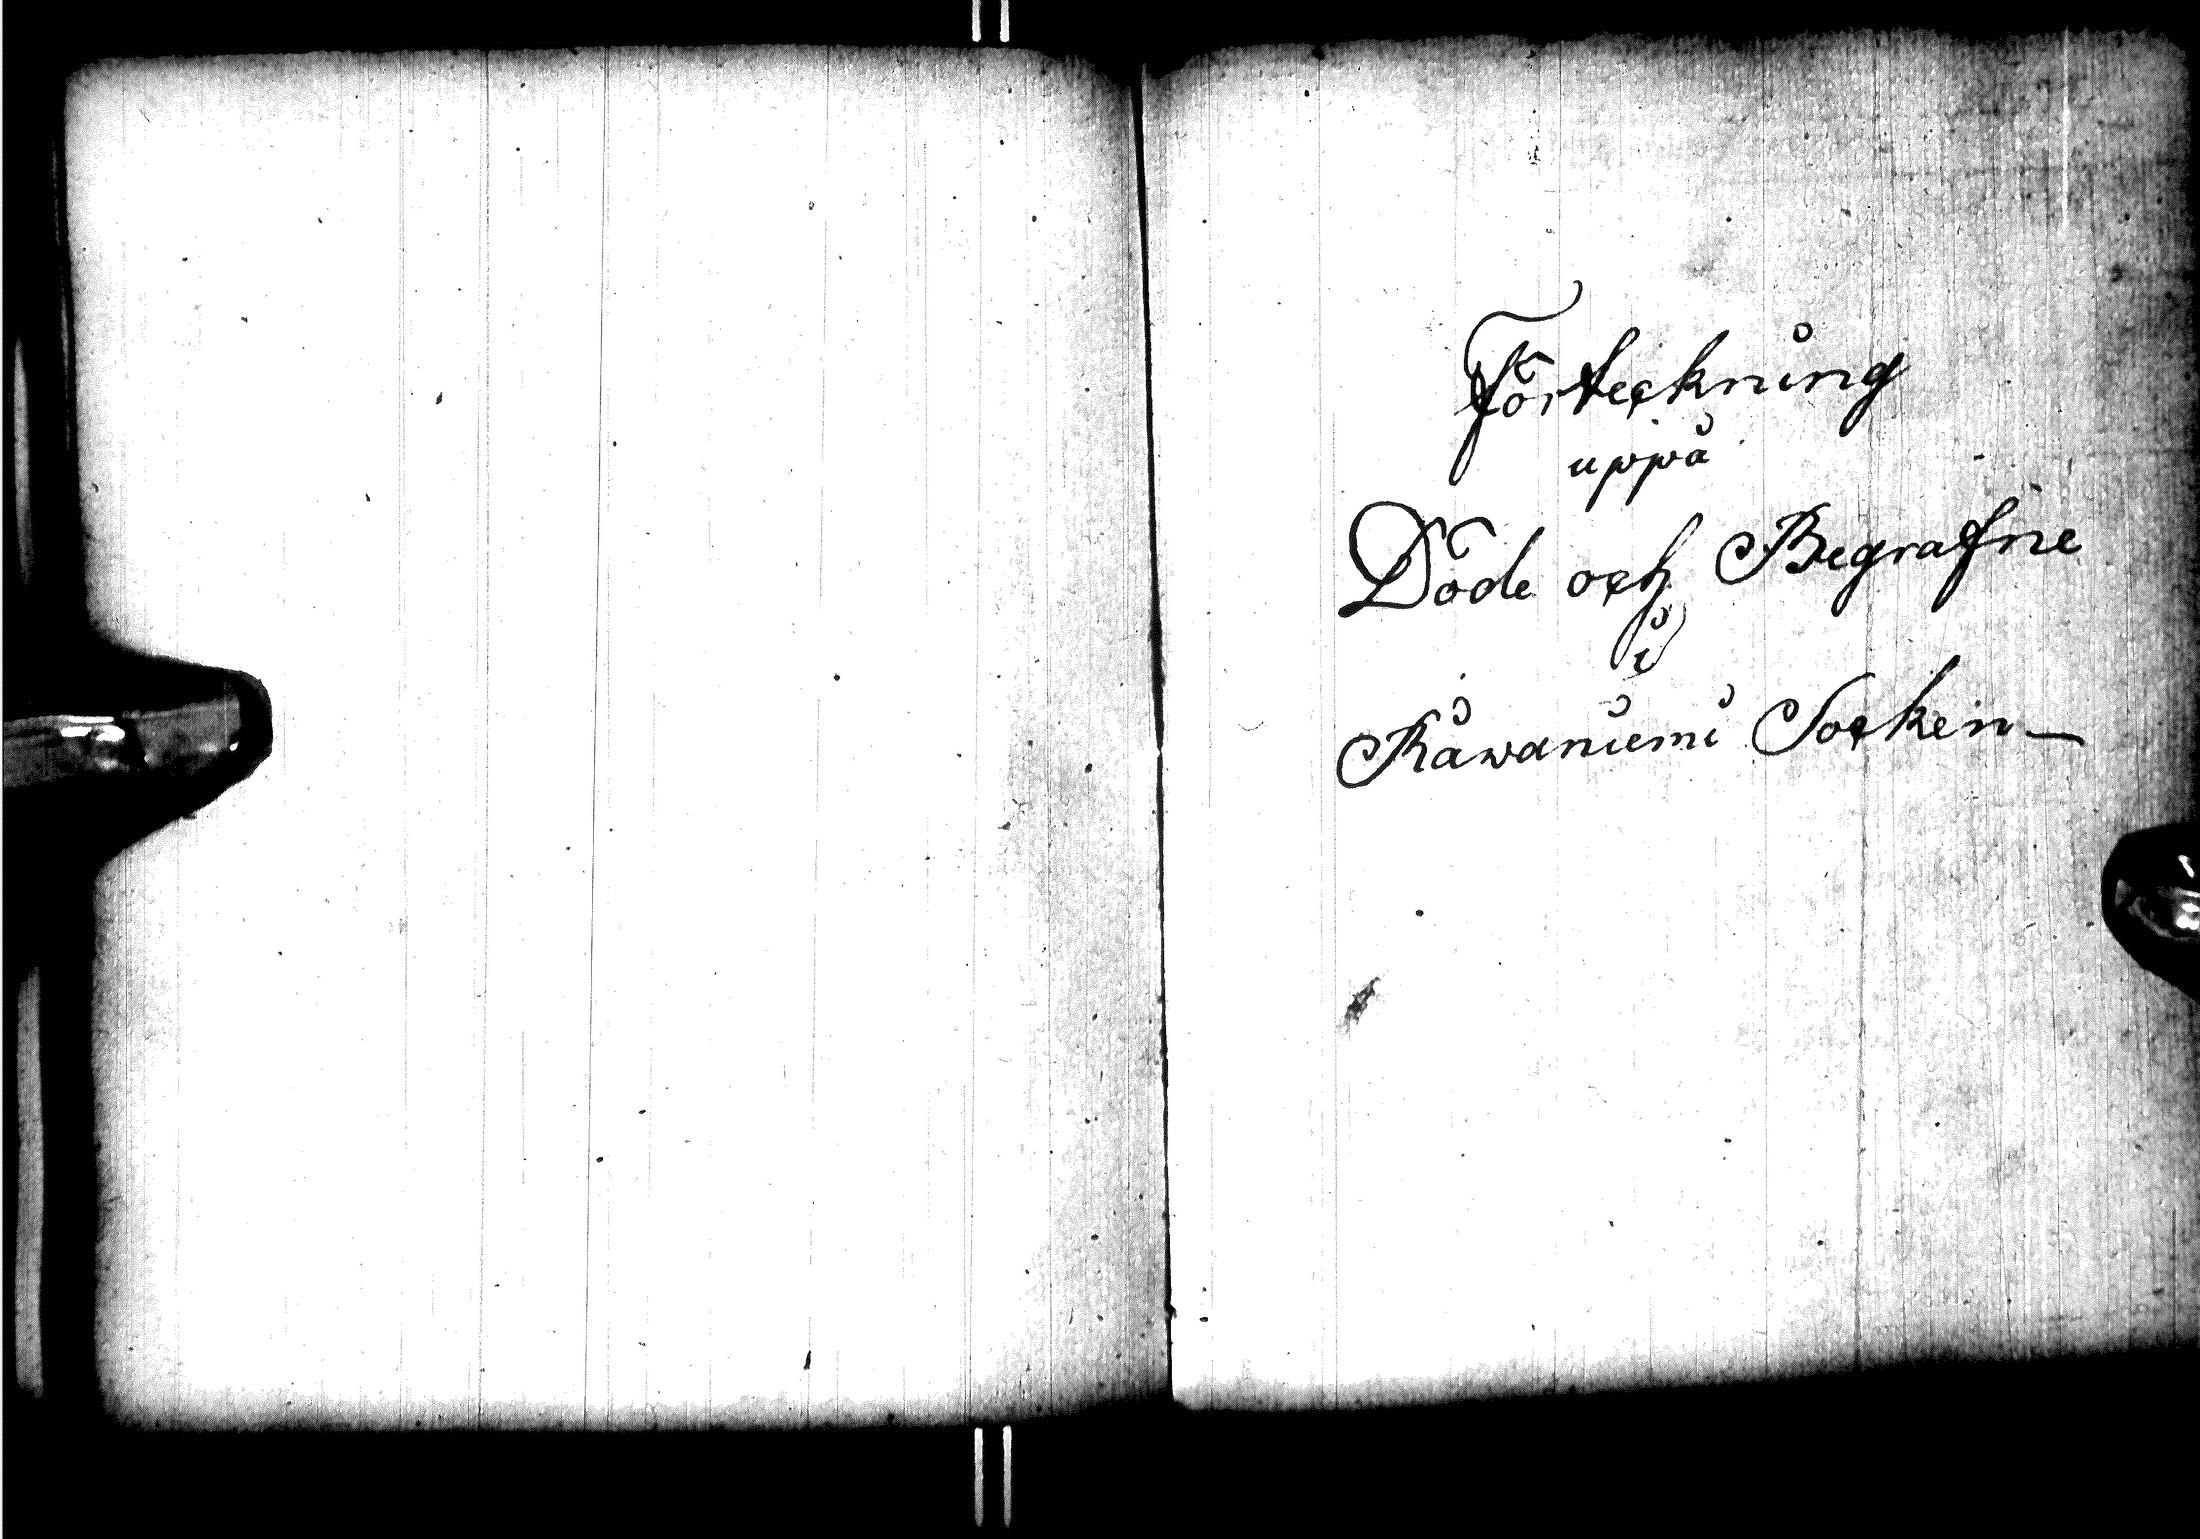 Förteckning
uppå
Döde och Begrafne
i
Råwaniemi Socken